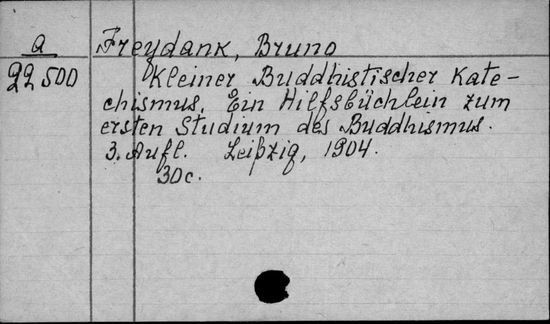 a Freydank, Bruno
22500 Kleiner Buddhistischer Kate-
chismus. Ein Hilfsbüchlein zum
ersten Studium des Buddhismus.
3. Aufl. Leipzig, 1904.
30c.